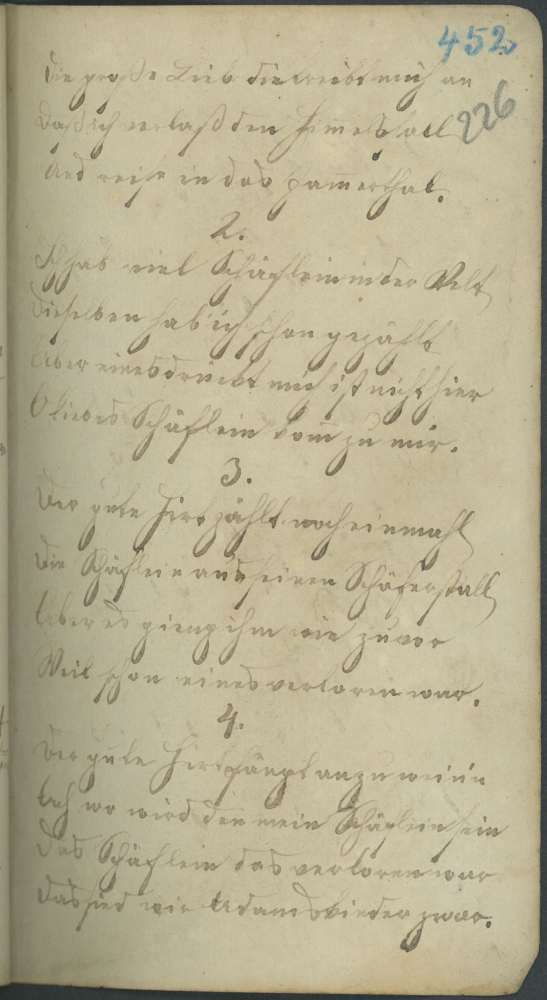 452
226
Die große Lieb die treibt mich an
Daß ich verlaß den Himelssall
Und reise in das Jamerthal.
2.
Ich hab viel Schäflein in der Welt
Dieselben hab ich schon gezählt
Aber eines drückt mich ist nicht hier
O liebes Schäflein kom zu mir.
3.
Der gute Hirt zählt noch einmahl
Die Schäflein aus seinen Schäferstall
Aber es gieng ihm wie zuvor
Weil schon eines verloren war.
4.
Der gute Hirt fängt an zu weinen
Ach wo wird den mein Schäflein sein
Das Schäflein das verloren war
Das sind wir Adamskinder zwar.